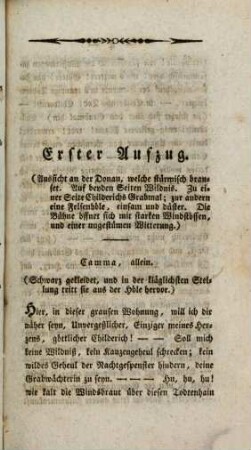 Erster Aufzug.
(Aussicht an der Donau, welche stürmisch brau-
set. Auf beyden Seiten Wildnis. Zu ei-
ner Seite Childerichs Grabmal; zur andern
eine Felsenhöle, einsam und düster. Die
Bühne öffnet sich mit starken Windstößen,
und einer ungestümen Witterung.)
Camma, allein.
(Schwarz gekleidet, und in der kläglichsten Stel-
lung tritt sie aus der Höle hervor.)
Hier, in dieser grausen Wohnung, will ich dir
näher seyn, Unvergeßlicher, Einziger meines Her-
zens, göttlicher Childerich! — — Soll mich
keine Wildniß, kein Kauzengeheul schrecken; kein
wildes Geheul der Nachtgespenster hindern, deine
Grabwächterin zu seyn. — — — Hu, hu, hu!
wie kalt die Windsbraut über diesen Todtenhain